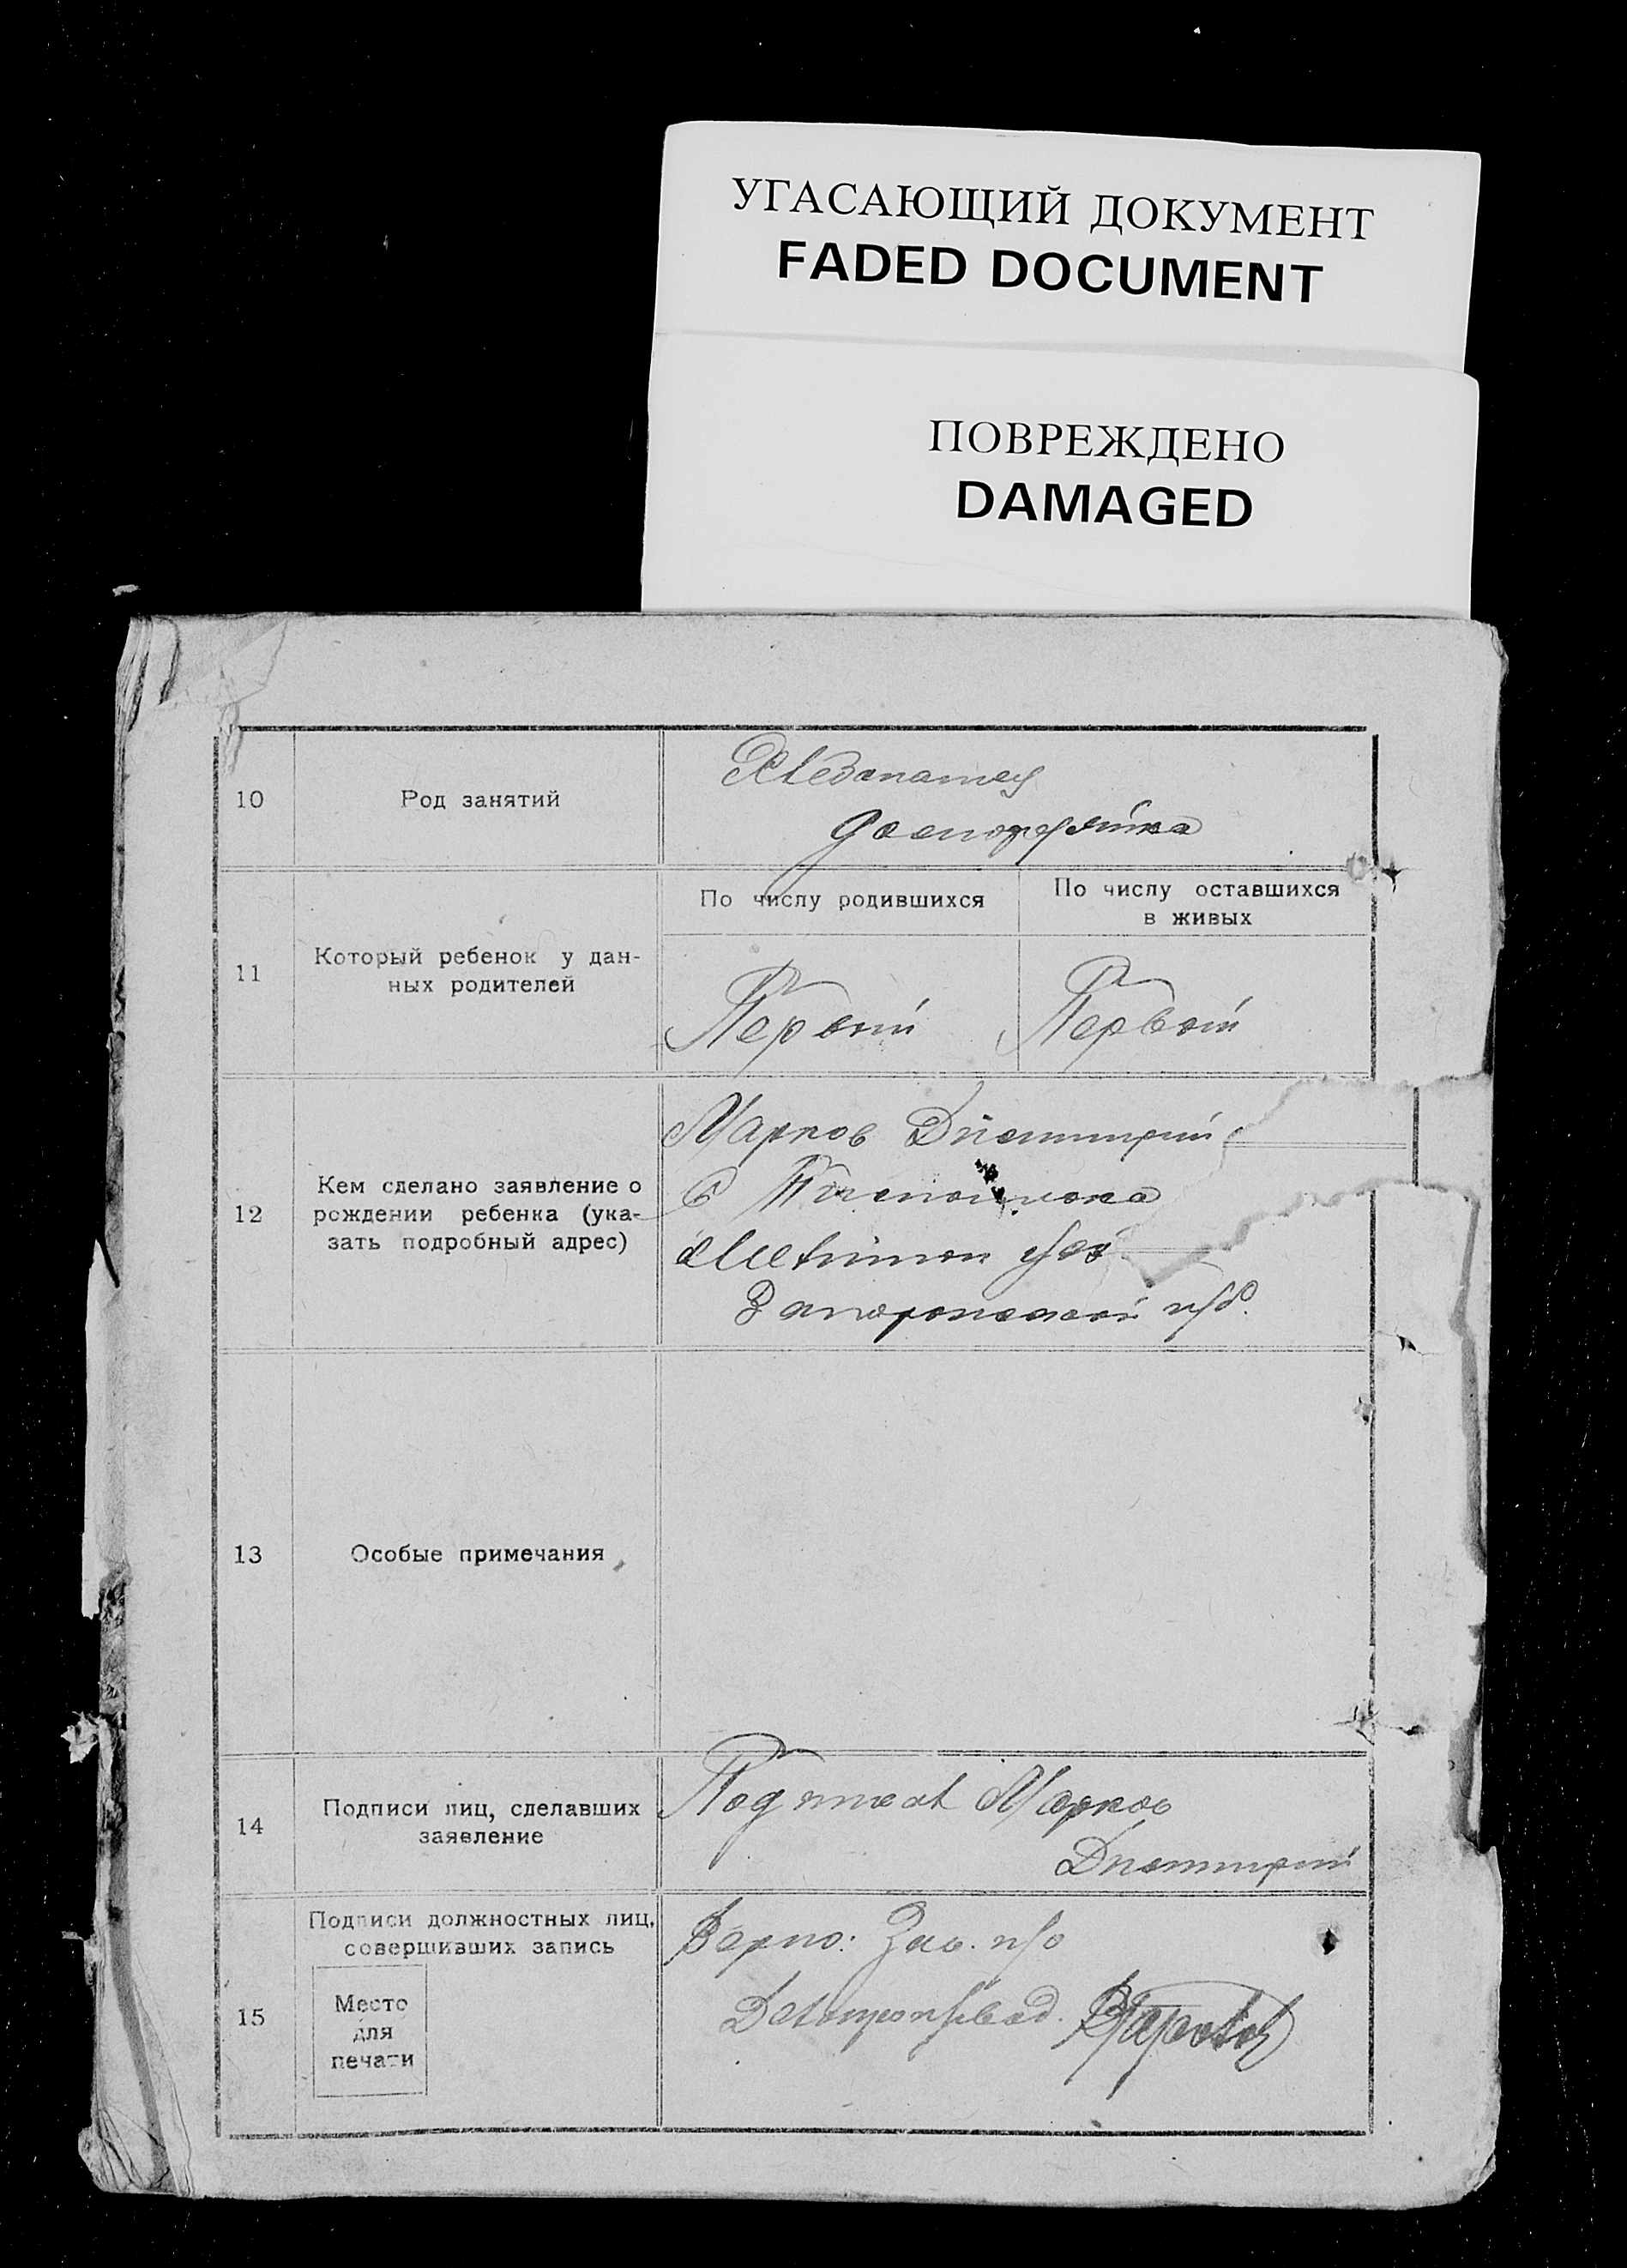 УГАСАЮЩИЙ ДОКУМЕНТ
FADED DOCUMENT
ПОВРЕЖДЕНО
DAMAGED
10
Род занятий
Хлебопашец
11
Который ребенок у дан-
ных родителей
По числу родившихся
По числу оставшихся
в живых
Первый
Первый
12
Кем сделано заявление о
рождении ребенка (ука-
зать подробный адрес)
Марков Дмитрий
С
13
Особые примечания
14
Подписи лиц, сделавших
заявление
Подписал Марков
Дмитрий
15
Подписи должностных лиц,
совершивших запись
Место
для
печати
Верно: Зав. п/о